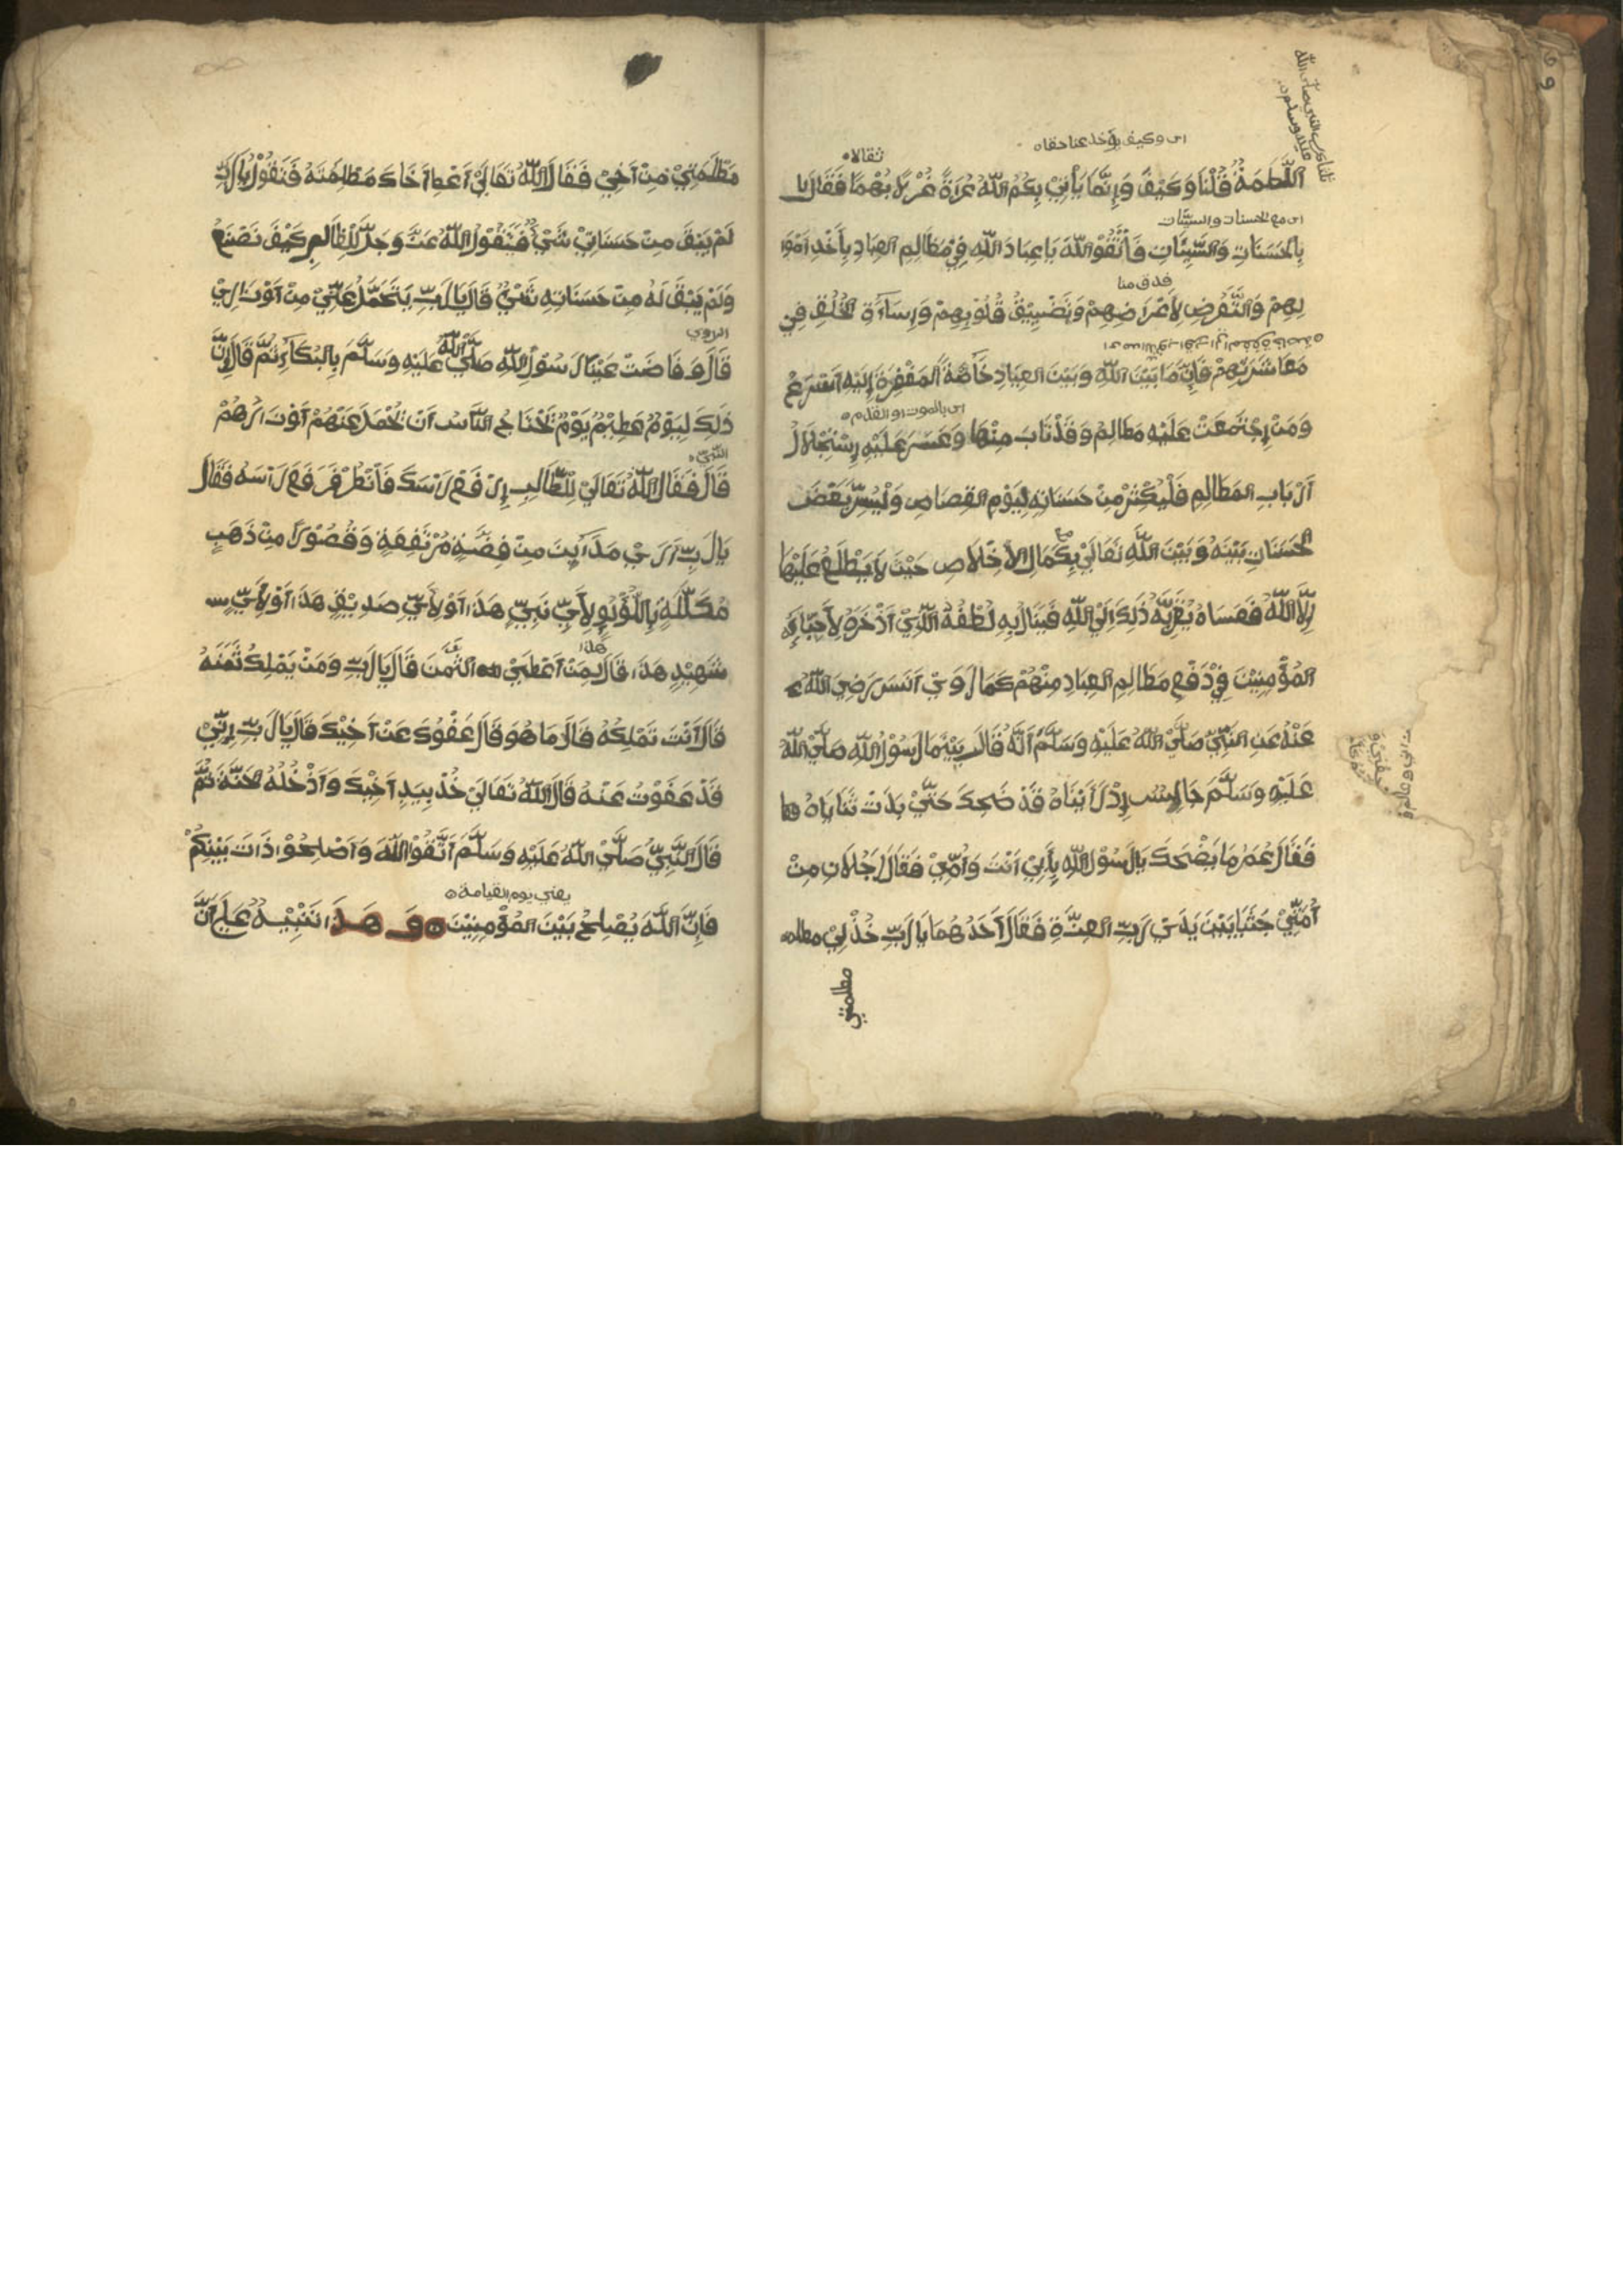 اي وكيف يؤخذ عنا حقاه
ثقالاه
اللَّطْمَةُ قُلْنَا وَكَيْفَ وَإِنَّمَا يَأْتِيْ بِكُمُ اللّٰهُ عُرَاةً غُرْلًا بُهْمًا فَقَالَ يا
اي مع الحسنات والسيئات
بِالْحَسَنَاتِ وَالسَّيِّئَاتِ فَاتَّقُوْا اللّٰهَ يَا عِبَادَ اللّٰهِ فِيْ مَظَالِمِ العِبَادِ بِأَخْذِ اَمْوَا
لِهِمْ وَالتَّعَرُّضِ لِأَعْرَاضِهِمْ وَتَضْيِيْقِ قُلُوْبِهِمْ وَإِسَاءَةِ الْخُلُقِ فِي
مُعَاشَرَتِهِمْ فَإِنَّ مَا بَيْنَ اللّٰهِ وَبَيْنَ العِبَادِ خَاصَّةً المَغْفِرَةُ إِلَيْهِ اَسْرَعُ
اي بالموت او العدم
وَمَنْ إِجْتَمَعَتْ عَلَيْهِ مَظَالِمُ وَقَدْ تَابَ مِنْهَا وَعَسَرَ عَلَيْهِ إِسْتِحْلَالُ
اَرْبَابِ المَظَالِمِ فَلْيُكْثِرْ مِنْ حَسَنَاتِهِ لِيَوْمِ القِصَاصِ وَلْيُسِرَّ بَعْضَ
الْحَسَنَاتِ بَيْنَهُ وَبَيْنَ اللّٰهِ تَعَالَيْ بِكَمَالِ الأَخْلَاصِ حَيْثُ لَا يَطَّلِعُ عَلَيْهَا
إِلَّا اللّٰهُ فَعَسَاهُ يُقَرِّبُهُ ذَلِكَ إِلَيْ اللّٰهِ فَيَنَالُ بِهِ لُطْفَهُ الَّذِيْ اَذْخَرَهُ لِأَحْبَابِهِ
المُؤْمِنِيْنَ فِيْ دَفْعِ مَظَالِمِ العِبَادِ مِنْهُمْ كَمَا رَوَيْ اَنَسٌ رَضِيَ اللّٰهُ
عَنْهُ عَنِ النَّبِيِّ صَلَّيْ اللّٰهُ عَلَيْهِ وَسَلَّمَ اَنَّهُ قَالَ بَيْنَمَا رَسُوْلُ اللّٰهِ صَلَّيْ اللّٰهُ
عَلَيْهِ وَسَلَّمَ جَالِسٌ إِذْ رَأَيْنَاهُ قَدْ ضَحِكَ حَتَّيْ بَدَتْ ثَنَايَاهُ
فَقَالَ عُمَرُ مَا يَضْحَكَ يَا رَسُوْلَ اللّٰهِ بِأَبِيْ اَنْتَ وَاُمِّيْ فَقَالَ رَجُلَانِ مِنْ
اُمَّتِيْ جَثَيَا بَيْنَ يَدَيْ رَبِّ العِزَّةِ فَقَالَ اَحَدُهُمَا يَا رَبِّ خُذْ لِيْ
مظلمتي
مَظْلَمَتِيْ مِنْ اَخِيْ فَقَالَ اللّٰهُ تَعَالَيْ اَعْطِ اَخَاكَ مَظْلِمَتَهُ فَتَقُوْلُ يَا رَبِّ
لَمْ يَبْقَ مِنْ حَسَنَاتِيْ شَيْءٌ فَيَقُوْلُ اللّٰهُ عَزَّ وَجَلَّ لِلظَّالِمِ كَيْفَ نَصْنَعُ
وَلَمْ يَبْقَ لَهُ مِنْ حَسَنَاتِهِ شَيْءٌ قَالَ يَا رَبِّ يَتَحَمَّلْ عَنِّيْ مِنْ اَوْزَارِيْ
الراوي
قَالَ وَفَاضَتْ عَيْنَا رَسُوْلِ اللّٰهِ صَلَّيْ اللّٰهُ عَلَيْهِ وَسَلَّمَ بِالبُكَاءِ ثُمَّ قَالَ إِنَّ
ذَلِكَ لَيَوْمٌ عَظِيْمٌ يَوْمٌ تَحْتَاجُ النَّاسُ اَنْ تُحْمَلَ عَنْهُمْ اَوْزَارُهُمْ
النبي
قَالَ فَقَالَ اللّٰهُ تَعَالَيْ لِلطَّالِبِ إِرْفَعْ رَأْسَكَ فَانْظُرْ فَرَفَعَ رَأْسَهُ فَقَالَ
يَا رَبِّ اَرَيْ مَدَايِنَ مِنْ فِضَّةٍ مُرْتَفِعَةٍ وَقُصُوْرًا مِنْ ذَهَبٍ
مُكَلَّلَةٍ بِاللُّؤْلُؤِ لِأَيِّ نَبِيٍّ هَذَا اَوْ لِأَيِّ صَدِيْقٍ هَذَا اَوْ لِأَيِّ
شَهِيْدٍ هَذَا قَالَ لِمَنْ اَعْطَيْ هذا الثَّمَنَ قَالَ يَا رَبِّ وَمَنْ يَمْلِكُ ثَمَنَهُ
قَالَ اَنْتَ تَمْلِكُهُ قَالَ مَا هُوَ قَالَ عَفْوُكَ عَنْ اَخِيْكَ قَالَ يَا رَبِّ إِنِّيْ
قَدْ عَفَوْتُ عَنْهُ قَالَ اللّٰهُ تَعَالَيْ خُذْ بِيَدِ اَخِيْكَ وَاَدْخِلْهُ الْجَنَّةَ ثُمَّ
قَالَ النَّبِيُّ صَلَّيْ اللّٰهُ عَلَيْهِ وَسَلَّمَ اَتَّقُوْا اللّٰهَ وَاَصْلِحُوْا ذَاتَ بَيْنِكُمْ
يعني يوم القيامة
فَإِنَّ اللّٰهَ يُصْلِحُ بَيْنَ المُؤْمِنِيْنَ وَهَذَا تَنْبِيْهٌ عَلَيْ اَنَّ